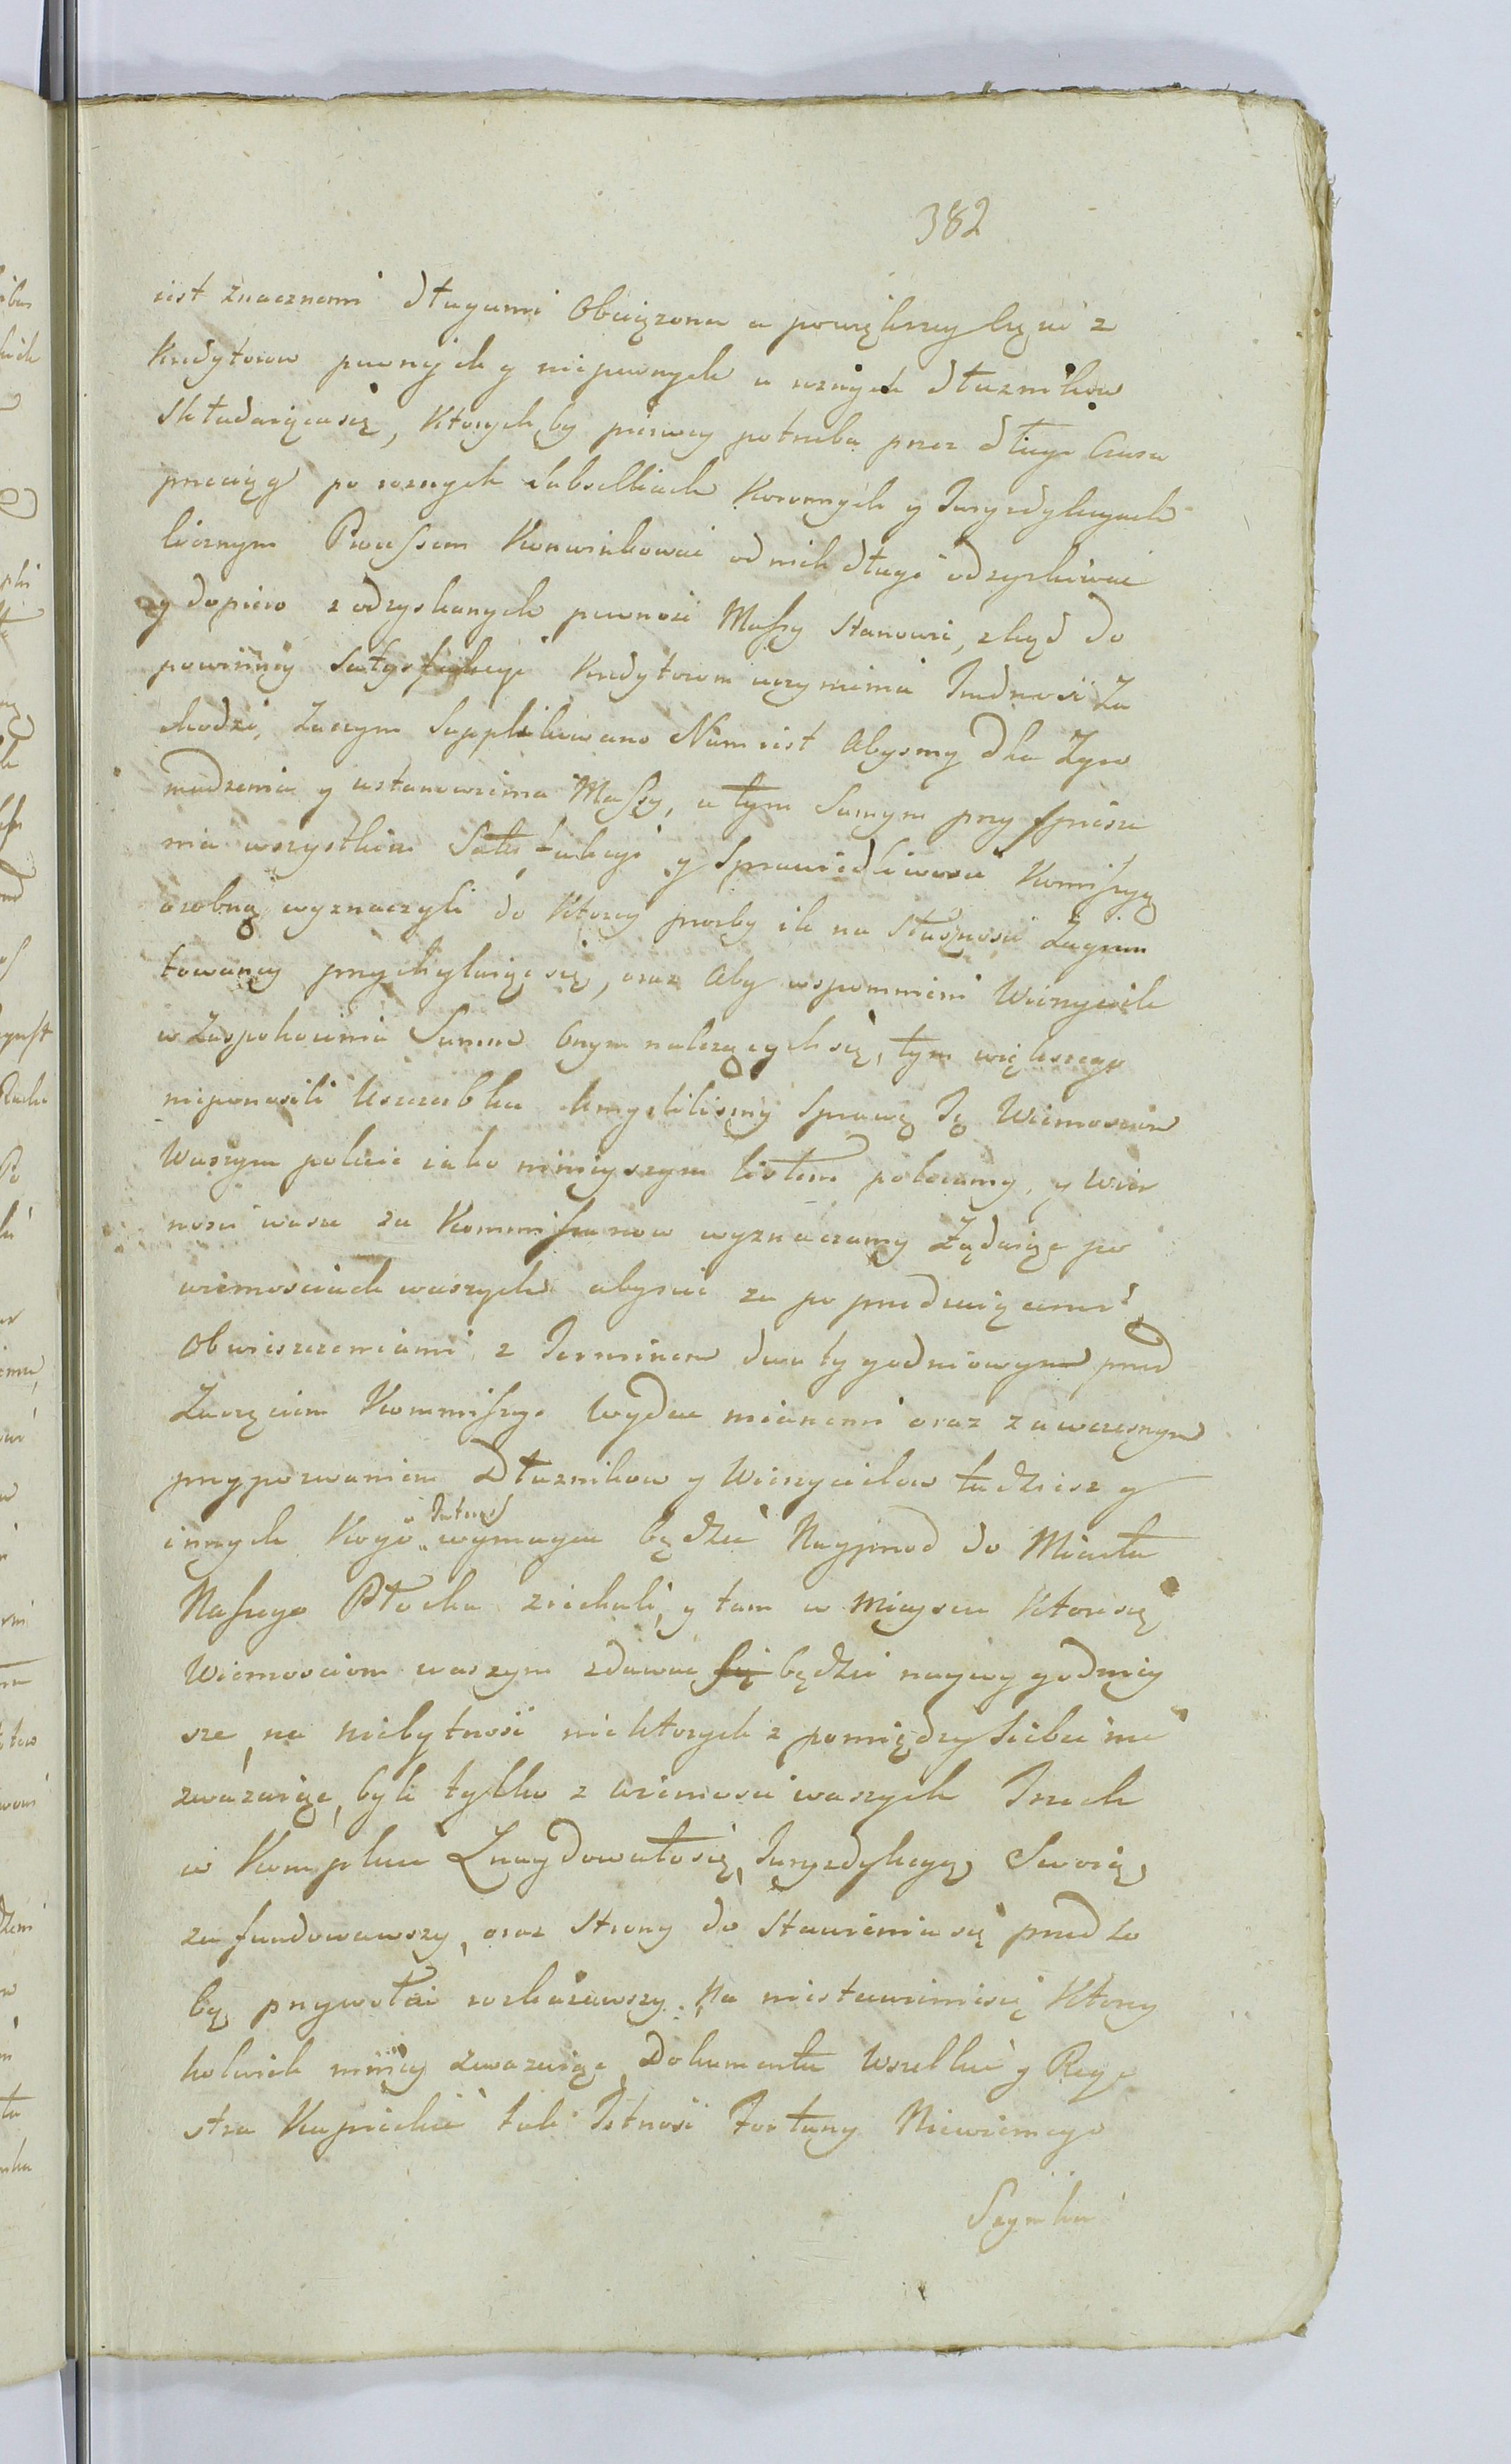 382
iest znacznemi długami Obciązona a powiększey Częsci z
Kredytorow pewnych y niepewnych u roznych dłuznikow
składaiącasię, ktorych by pierwey potrzeba przez długi Czasu
przeciąg po roznych Subselliach Koronnych y Juryzdykcyach
licznym Processem Konwinkować od nich długi odzyskiwać
y dopiero z odzyskanych pewnosć Massy stanowić, zkąd do
powinney Satysfakcyi Kredytorom uczynienia Trudnosć Za
chodzi, Zaczym Supplikowano Nam iest Abysmy dla Zgro
madzenia y ustanowienia Massy, a tym Samym przyspiesze
nia wszystkim Satysfakcyi y Sprawiedliwosci Komissyą
osobną wyznaczyli do Ktorey prozby ile na Słusznosci Zagrun
towaney przychylaiąc się, oraz Aby wspomnieni Wierzyciele
w Zaspokoieniu Summ Onym nalezących się, tym większego
nieponosili Uszczerbku Umyslilismy Sprawę Tę Wiernosciom
Waszym polecić iako ninieyszym listem polecamy, y Wier
nosci wasze za Kommissarzow wyznaczamy Ządaiąc po
wiernosciach waszych abyscie za poprzedzaiącemi
Obwieszczeniami z Terminem dwu tygodniowym przed
Zaczęciem Kommissyi Wydać mianemi oraz zawczesnym
przypozwaniem Dłuznikow y Wierzycielow tudziesz y
innych Kogo Jstność wymagać będzie Nayprzod do Miasta
Naszego Płocka ziechali, y tam w Mieyscu Ktore się
Wiernosciom waszym zdawać się będzie naywygodniey
sze, na niebytnosć niektorych z pomiędzy siebie nie
zwazaiąc, byle tylko z wiernosci waszych Trzech
w Komplecie Znaydowało się, Juryzdykcyą Swoią
zafundowawszy, oraz Strony do Stawienia się przed so
bą przywołać rozkazawszy. Na niestawienie się Ktorey
kolwiek mniey zwazaiąc Dokumenta Wszelkie y Reye
stra Kupieckie tak Jstnosć Fortuny Niewiernego
Szymka